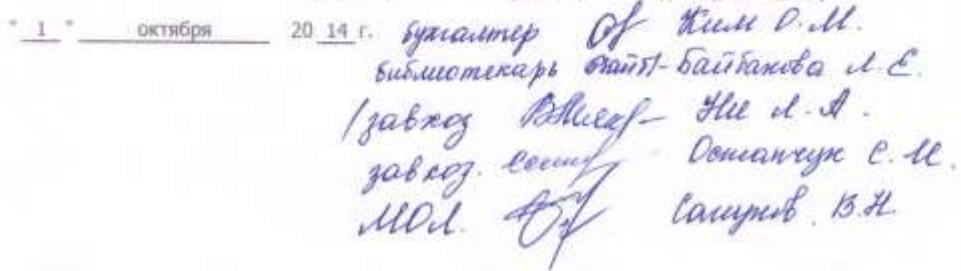 " 1 " октября 20 14 г. бухгалтер Ким О.М.
библиотекарь Байбакова Л.Е.
/завхоз Ни Л.А.
завхоз. Остапчук С.М.
МОЛ. В.Н.